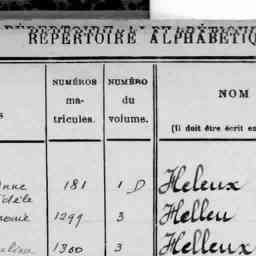 RÉPERTOIRE ALPHABÉTIQ
NUMÉROS
ma-
tricules.
NUMÉRO
du
volume.
NOM
(Il doit être écrit en
s
181 1 D Heleux
1299 3 Helleu
1300 3 Helleux